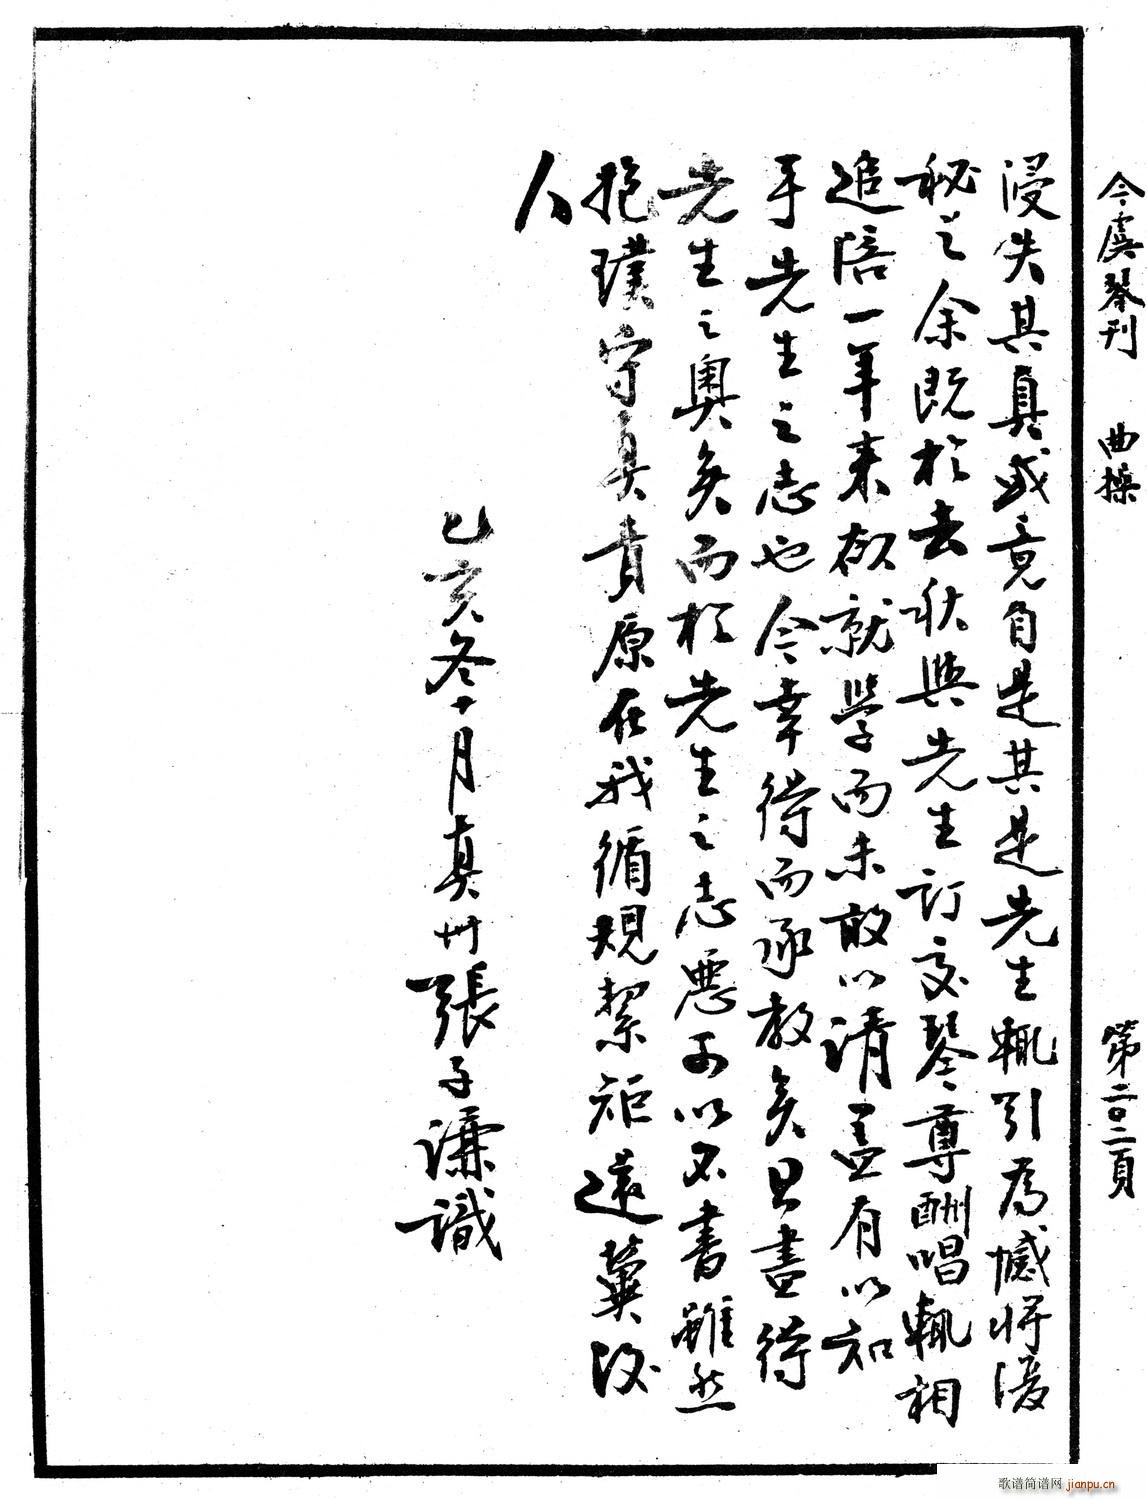 今虞琴刊　曲操　第二〇二頁
浸失其真或竟自是其是先生輒引為憾將湲
秘之余既於去秋與先生訂交琴尊酬唱輒相
追陪一年來欲就學而未敢以請蓋有以知
乎先生之志也今幸得而承教矣且盡得
先生之奧矣而於先生之志惡可以不書雖然
抱璞守真責原在我循規絜矩還冀後
人
乙亥冬十月真州張子謙識
歌谱简谱网 jianpu.cn